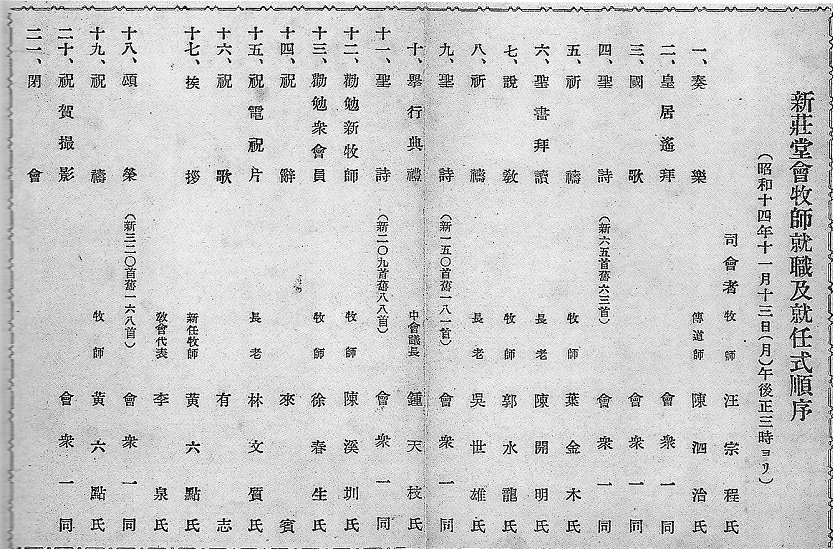 新莊堂會牧師就職及就任式順序
（昭和十四年十一月十三日（月）午後正三時ヨリ）
司會者 牧師 汪宗程氏
一、奏樂 傳道師 陳泗治氏
二、皇居遙拜 會衆一同
三、國歌 會衆一同
四、聖詩 （新六五首舊六三首） 會衆一同
五、祈禱 牧師 葉金木氏
六、聖書拜讀 長老 陳開明氏
七、說教 牧師 郭水龍氏
八、祈禱 長老 吳世雄氏
九、聖詩 （新一五〇首舊一八一首） 會衆一同
十、舉行典禮 中會議長 鍾天枝氏
十一、聖詩 （新二〇九首舊八八首） 會衆一同
十二、勸勉新牧師 牧師 陳溪圳氏
十三、勸勉衆會員 牧師 徐春生氏
十四、祝辭 來賓
十五、祝電祝片 長老 林文質氏
十六、祝歌 有志
十七、挨拶 新任牧師 黃六點氏
教會代表 李泉氏
十八、頌榮 （新三二〇首舊一六八首） 會衆一同
十九、祝禱 牧師 黃六點氏
二十、祝賀撮影 會衆一同
二一、閉會